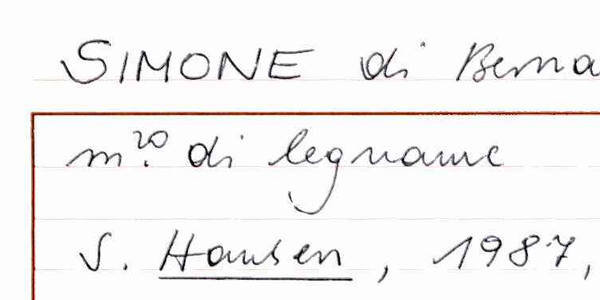 SIMONE di Berna
m.ro di legname
S. Hansen, 1987,